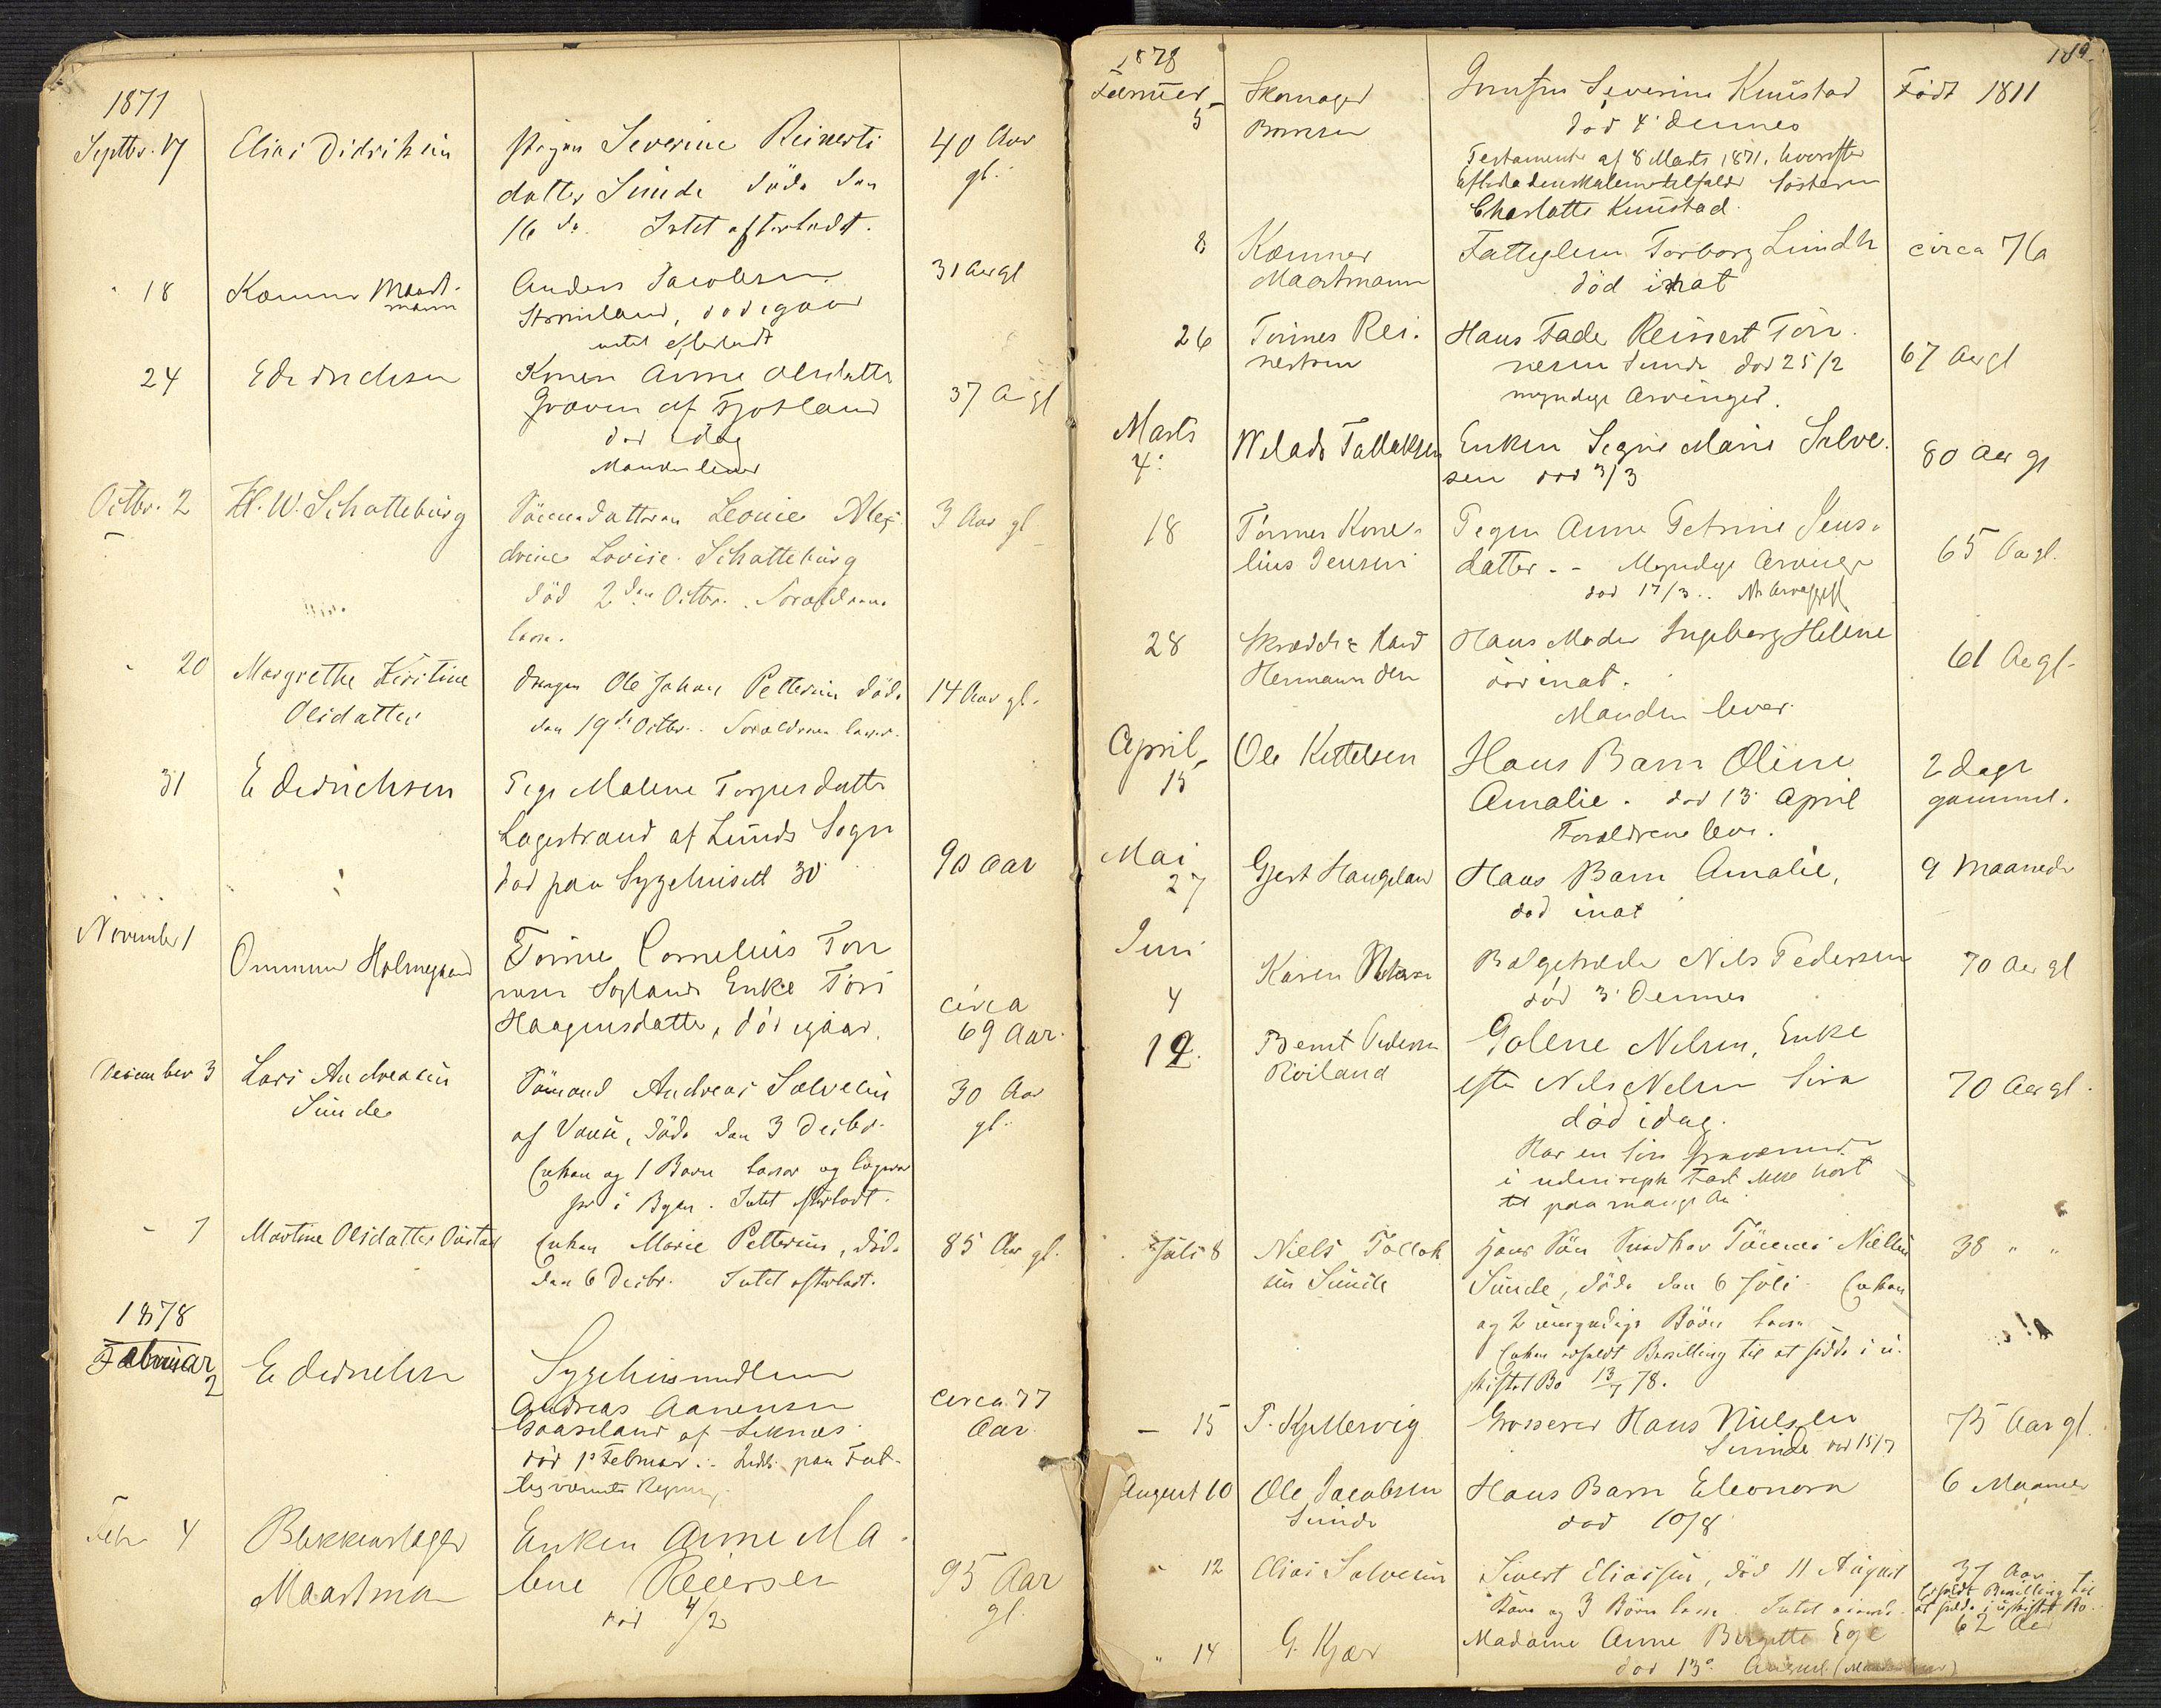 1877
Septbr. 17 Elias Didriksen Pigen Severine Reinerts 40 Aar
datter Sunde døde den gl.
16 de. Intet efterladt.
" 18 Kæmner Maart- Anders Jacobsen 31 Aar gl
mann
Strømland, død igaar
intet efterladt
24 E Didrichsen Konen Anne Olsdatter 37 A gl
af Fjotland
død idag
Manden lever
Octbr. 2 H. W. Schatteburg Sønnedatteren Leonie Alex- 3 Aar gl
drine Lovise Schatteburg
död 2 den Octbr. Forældrene
leve.
" 20 Margrethe Kirstine Drengen Ole Johan Pettersen døde 14 Aar gl.
Olsdatter den 19 de Octbr. Forældrene lever.
31 E Didrichsen Pige Malene Torgersdatter
Lagestrand af Lunds Sogn
død paa Sygehuset 30 90 Aar
November 1 Ommun Holmegaard Tønnes Cornelius Tøn
nesen Enke Tøri circa
Haagensdatter, död igaar. 69 Aar.
December 3 Lars Andreasen Sømand Andreas Salvesen 30 Aar
Sunde af Vanse, døde den 3 Decbr. gl.
Enken og 1 Barn lever og
i Byen. Intet efterladt.
- 7 Martine Olsdatter Enken Marie Pettersen, døde 85 Aar gl.
den 6 Decbr. Intet efterladt.
1878
Februar 2 E Didrichsen Sygehuuslem
Andreas Aanensen circa 77
Gaaseland af Liknes Aar
död 1ste Februar. paa Fat-
tigvæsenets Regning.
Febr 4 Blikkenslager Enken Anne Ma-
Maartman lene Reiersen 95 Aar
död 4/2 gl.
189.
1878
Februar 5 Skomager Jomfru Severine Knustad Födt 1811
död 4' dennes
Testamente af 8 Marts 1871, hvorefter
Efterladenskaberne tilfalder Søsteren
Charlotte Knustad.
8 Kæmner Fattiglem Torborg Lundh circa 76
Maartmann död inat
26 Tønnes Rei- Hans Fader Reinert Tön-
nertsen nesen Sunde död 25/2 67 Aar gl
myndige Arvinger.
Marts 4. Tallaksen Enken Signe Marie Salve- 80 Aar gl
sen död 3/3
18 Tönnes Korne- Pigen Anne Petrine Jens-
lius Jensen datter - - Myndige Arvinger 65 Aar gl.
död 17/3.
28 Skrædder Hans Moder Ingeborg Helene
död inat. 61 Aar gl.
Manden lever
April 15 Ole Kittelsen Hans Barn Oline 2 dage
Amalie. död 13 April gammel.
Forældrene lever.
Mai 27 Gjert Haugeland Hans Barn Amalie, 9 Maaneder
död inat
Juni 4 Karen Bælgetræder Nils Pedersen 70 Aar gl
död 3' Dennes
12. Bernt Pedersen Golene Nelsen, Enke
Röiland efter Nels Nelsen Sira 70 Aar gl.
död idag.
Har en Sön fraværende
i udenrigsk Fart ikke hört
til paa mange Aar
Juli 8 Niels Tollak- Hans Sön Tönnes Nielsen 38 " "
sen Sunde Sunde, døde den 6 Juli Enken
og 2 umyndige Börn lever
Enken erholdt Bevilling til at sidde i u-
skiftet Bo 13/7 78.
- 15 T. Kjellervig Grosserer Hans Nielsen 75 Aar gl.
Sunde död 15/7
August 10 Ole Jacobsen Hans Barn Eleonora 6 Maaneder
Sunde död 10/8
" 12 Elias Salvesen Sivert Eliassen, död 11 August 37 Aar
Kone og 3 Börn leve. Intet Erholdt Bevilling til
at sidde i uskiftet Bo.
" 14 G. Kjær Madame Anne Birgitte Ege 62 Aar
död 13de August